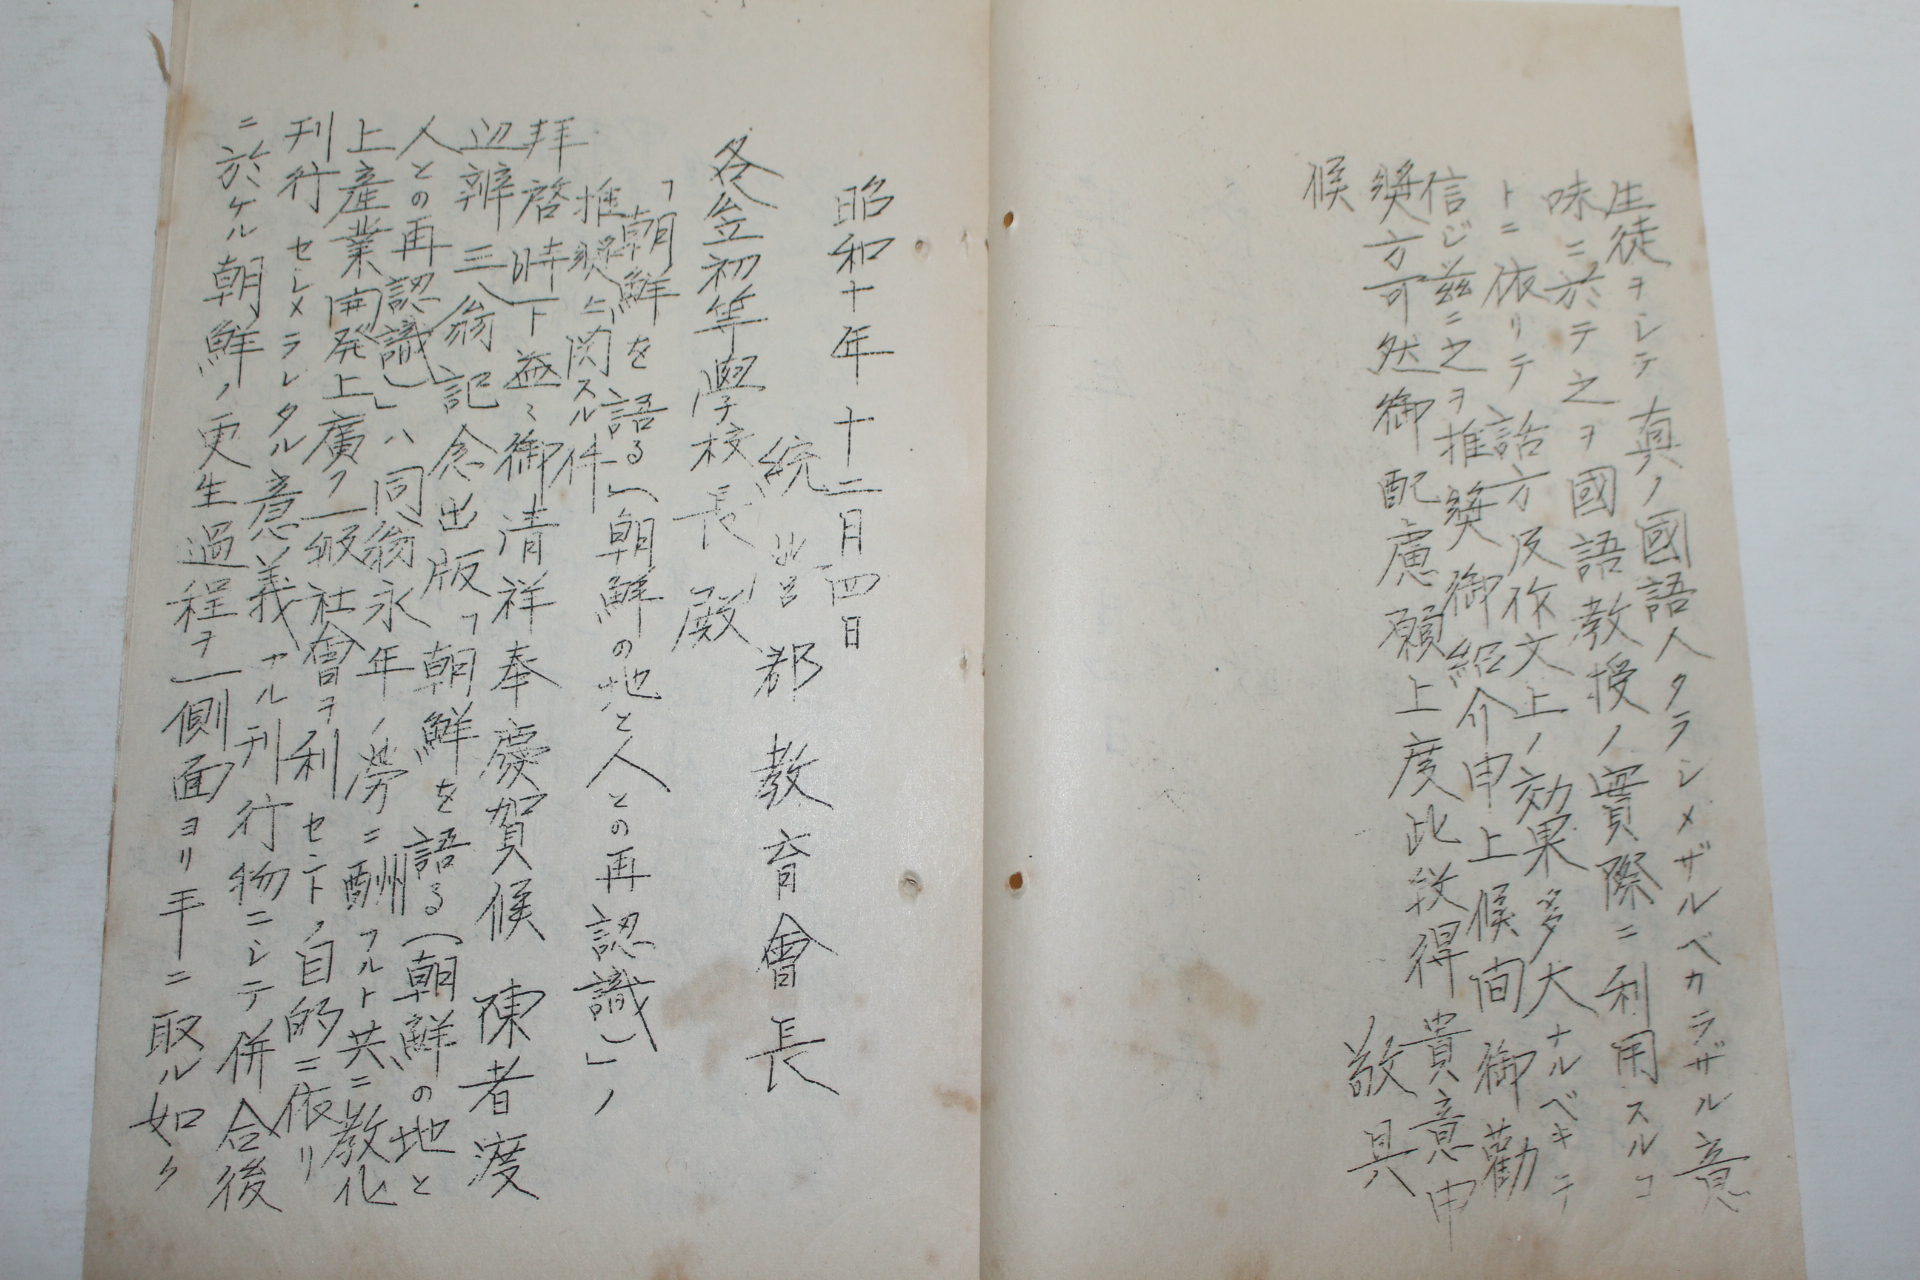 生徒ヲシテ真ノ國語人タラシメザルベカラザル意
味ニ於テ之ヲ國語教授ノ實際ニ利用スルコ
トニ依リテ話方反作文上ノ効果多大ナルベキテ
信ジ茲ニ之ヲ推奨御紹介申上候間御勸
奨方可然御配慮願上度此段得貴意申
候 敬具
昭和十年十二月四日
統営郡教育會長
各公立初等學校長殿
「朝鮮を語る」(朝鮮の地と人との再認識)」ノ
推奨ニ関スル件
拜啓時下益々御清祥奉慶賀候陳者渡
辺辨三翁記念出版「朝鮮を語る(朝鮮の地と
人との再認識)」ハ同翁永年ノ勞ニ酬フルト共ニ教化
上産業開発上廣ク一般社會ヲ利セントノ目的ニ依リ
刊行セシメラレタル意義ナル刊行物ニシテ併合後
ニ於ケル朝鮮ノ更生過程ヲ一側面ヨリ手ニ取ル如ク